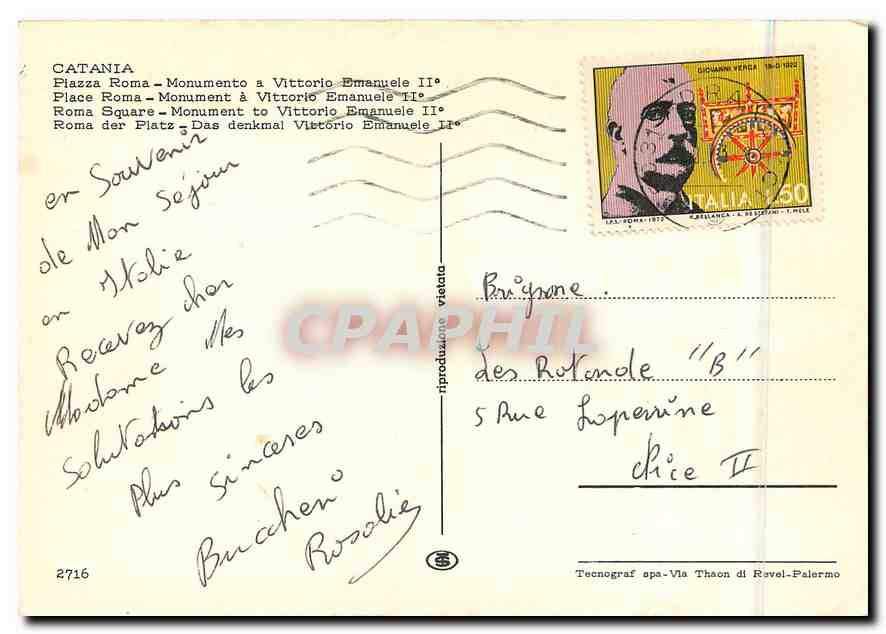 CATANIA
Piazza Roma - Monumento a Vittorio Emanuele II°
Place Roma - Monument à Vittorio Emanuele II°
Roma Square - Monument to Vittorio Emanuele II°
Roma der Platz - Das denkmal Vittorio Emanuele II°
GIOVANNI VERGA 1840-1922
ITALIA L.50
I.P.S.-ROMA-1972 R. BELLANCA - A. DE STEFANI - T. MELE
en Souvenir
de Mon Séjour
en Italie
Recevez cher
Madame Mes
Salutations les
Plus sincères
Buccheri
Rosalie
riproduzione vietata
CPAPHIL
Brignone.
Les Rotonde "B"
5 Rue Laperrine
Nice II
2716
Tecnograf spa - Via Thaon di Revel - Palermo